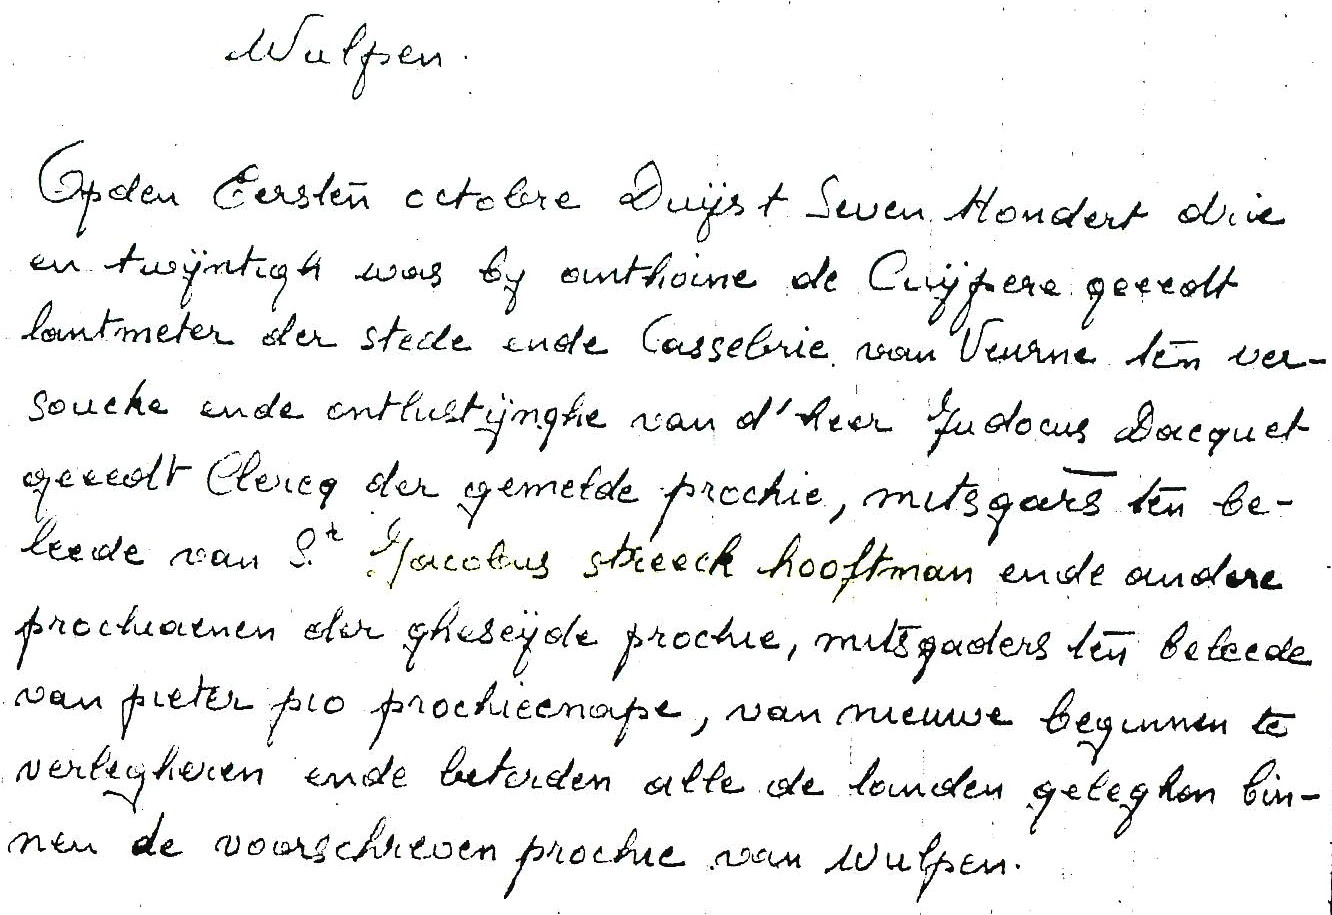 Wulpen.
Opden Eersten octobre Duijst Seven Hondert drie
en twijntigh was by anthoine de Cuijpere geeedt
lantmeter der stede ende Casselrie van Veurne ten ver-
soucke ende ontlustijnghe van d'heer Judocus Dacquet
geeedt Clercq der gemelde prochie, mitsgars ten be-
leede van Sr Jacobus streeck hooftman ende andere
prochiaenen der gheseijde prochie, mitsgaders ten beleede
van pieter pio prochiecnape, van nieuwe beginnen te
verlegheren ende beterden alle de landen geleghen bin-
nen de voorschreven prochie van Wulpen.